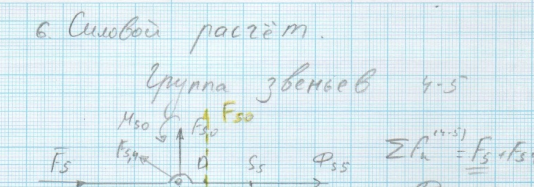 6. Силовой расчёт.
Группа звеньев 4-5
M50 F50 F50
F5,4 ΣFк(4-5) = F5 + F5
F5 D S5 Ф55